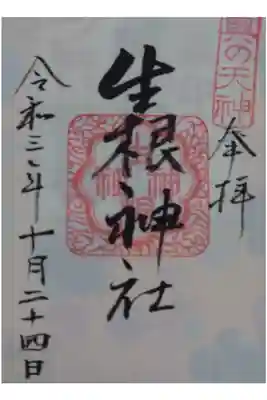 奥の天神
奉拝
生根神社
令和三年十月二十四日